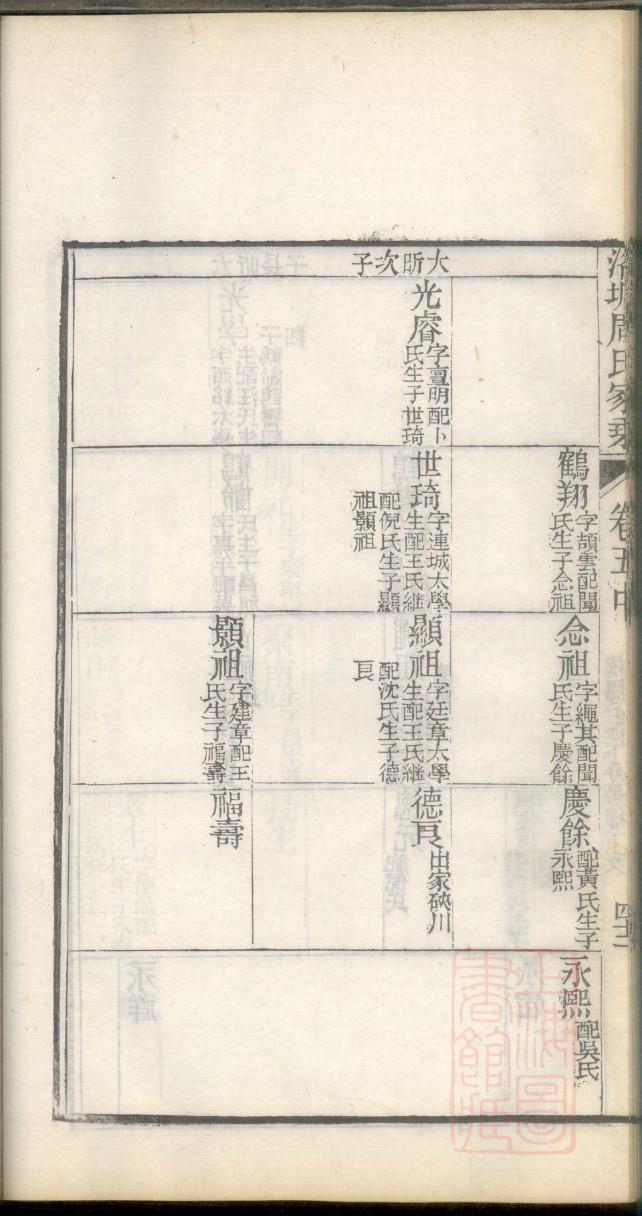 洛塘周氏家乘
卷五中
四十二
鶴翔
字頡雲配聞
氏生子念祖
念祖
字繩其配聞
氏生子慶餘
慶餘
配黃氏生子
永熙
永熙
配吳氏
大昕次子
光睿
字亶明配卜
氏生子世琦
世琦
字連城太學
生配王氏繼
配倪氏生子顯
祖顥祖
顯祖
字廷章太學
生配王氏繼
配沈氏生子德
㫐
德㫐
出家硤川
顥祖
字建章配王
氏生子福壽
福壽
上海圖
書館藏